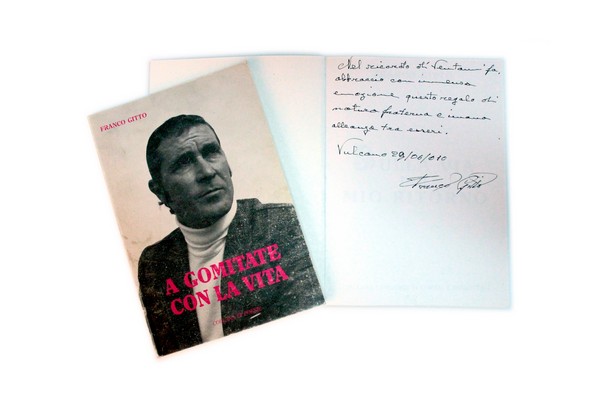 FRANCO GITTO
A GOMITATE
CON LA VITA
Nel ricordo di Vent'anni fa,
abbraccio con immensa
emozione questo regalo di
natura fraterna e umana
alleanza tra esseri.
Vulcano 29/06/010
Franco Gitto